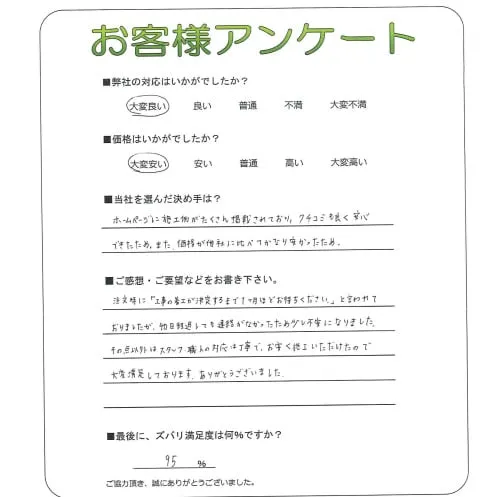 お客様アンケート
■弊社の対応はいかがでしたか？
大変良い 良い 普通 不満 大変不満
■価格はいかがでしたか？
大変安い 安い 普通 高い 大変高い
■当社を選んだ決め手は？
ホームページに施工例がたくさん掲載されており，クチコミも良く安心
できたため。また，価格が他社に比べてかなり安かったため。
■ご感想・ご要望などをお書き下さい。
注文時に「工事の着工が決定するまで1ヶ月ほどお待ちください。」と言われて
おりましたが，期日経過しても連絡がなかったため少し不安になりました。
その点以外はスタッフ・職人の対応は丁寧で，お安く施工いただけたので
大変満足しております。ありがとうございました。
■最後に、ズバリ満足度は何%ですか？
95 %
ご協力頂き、誠にありがとうございました。